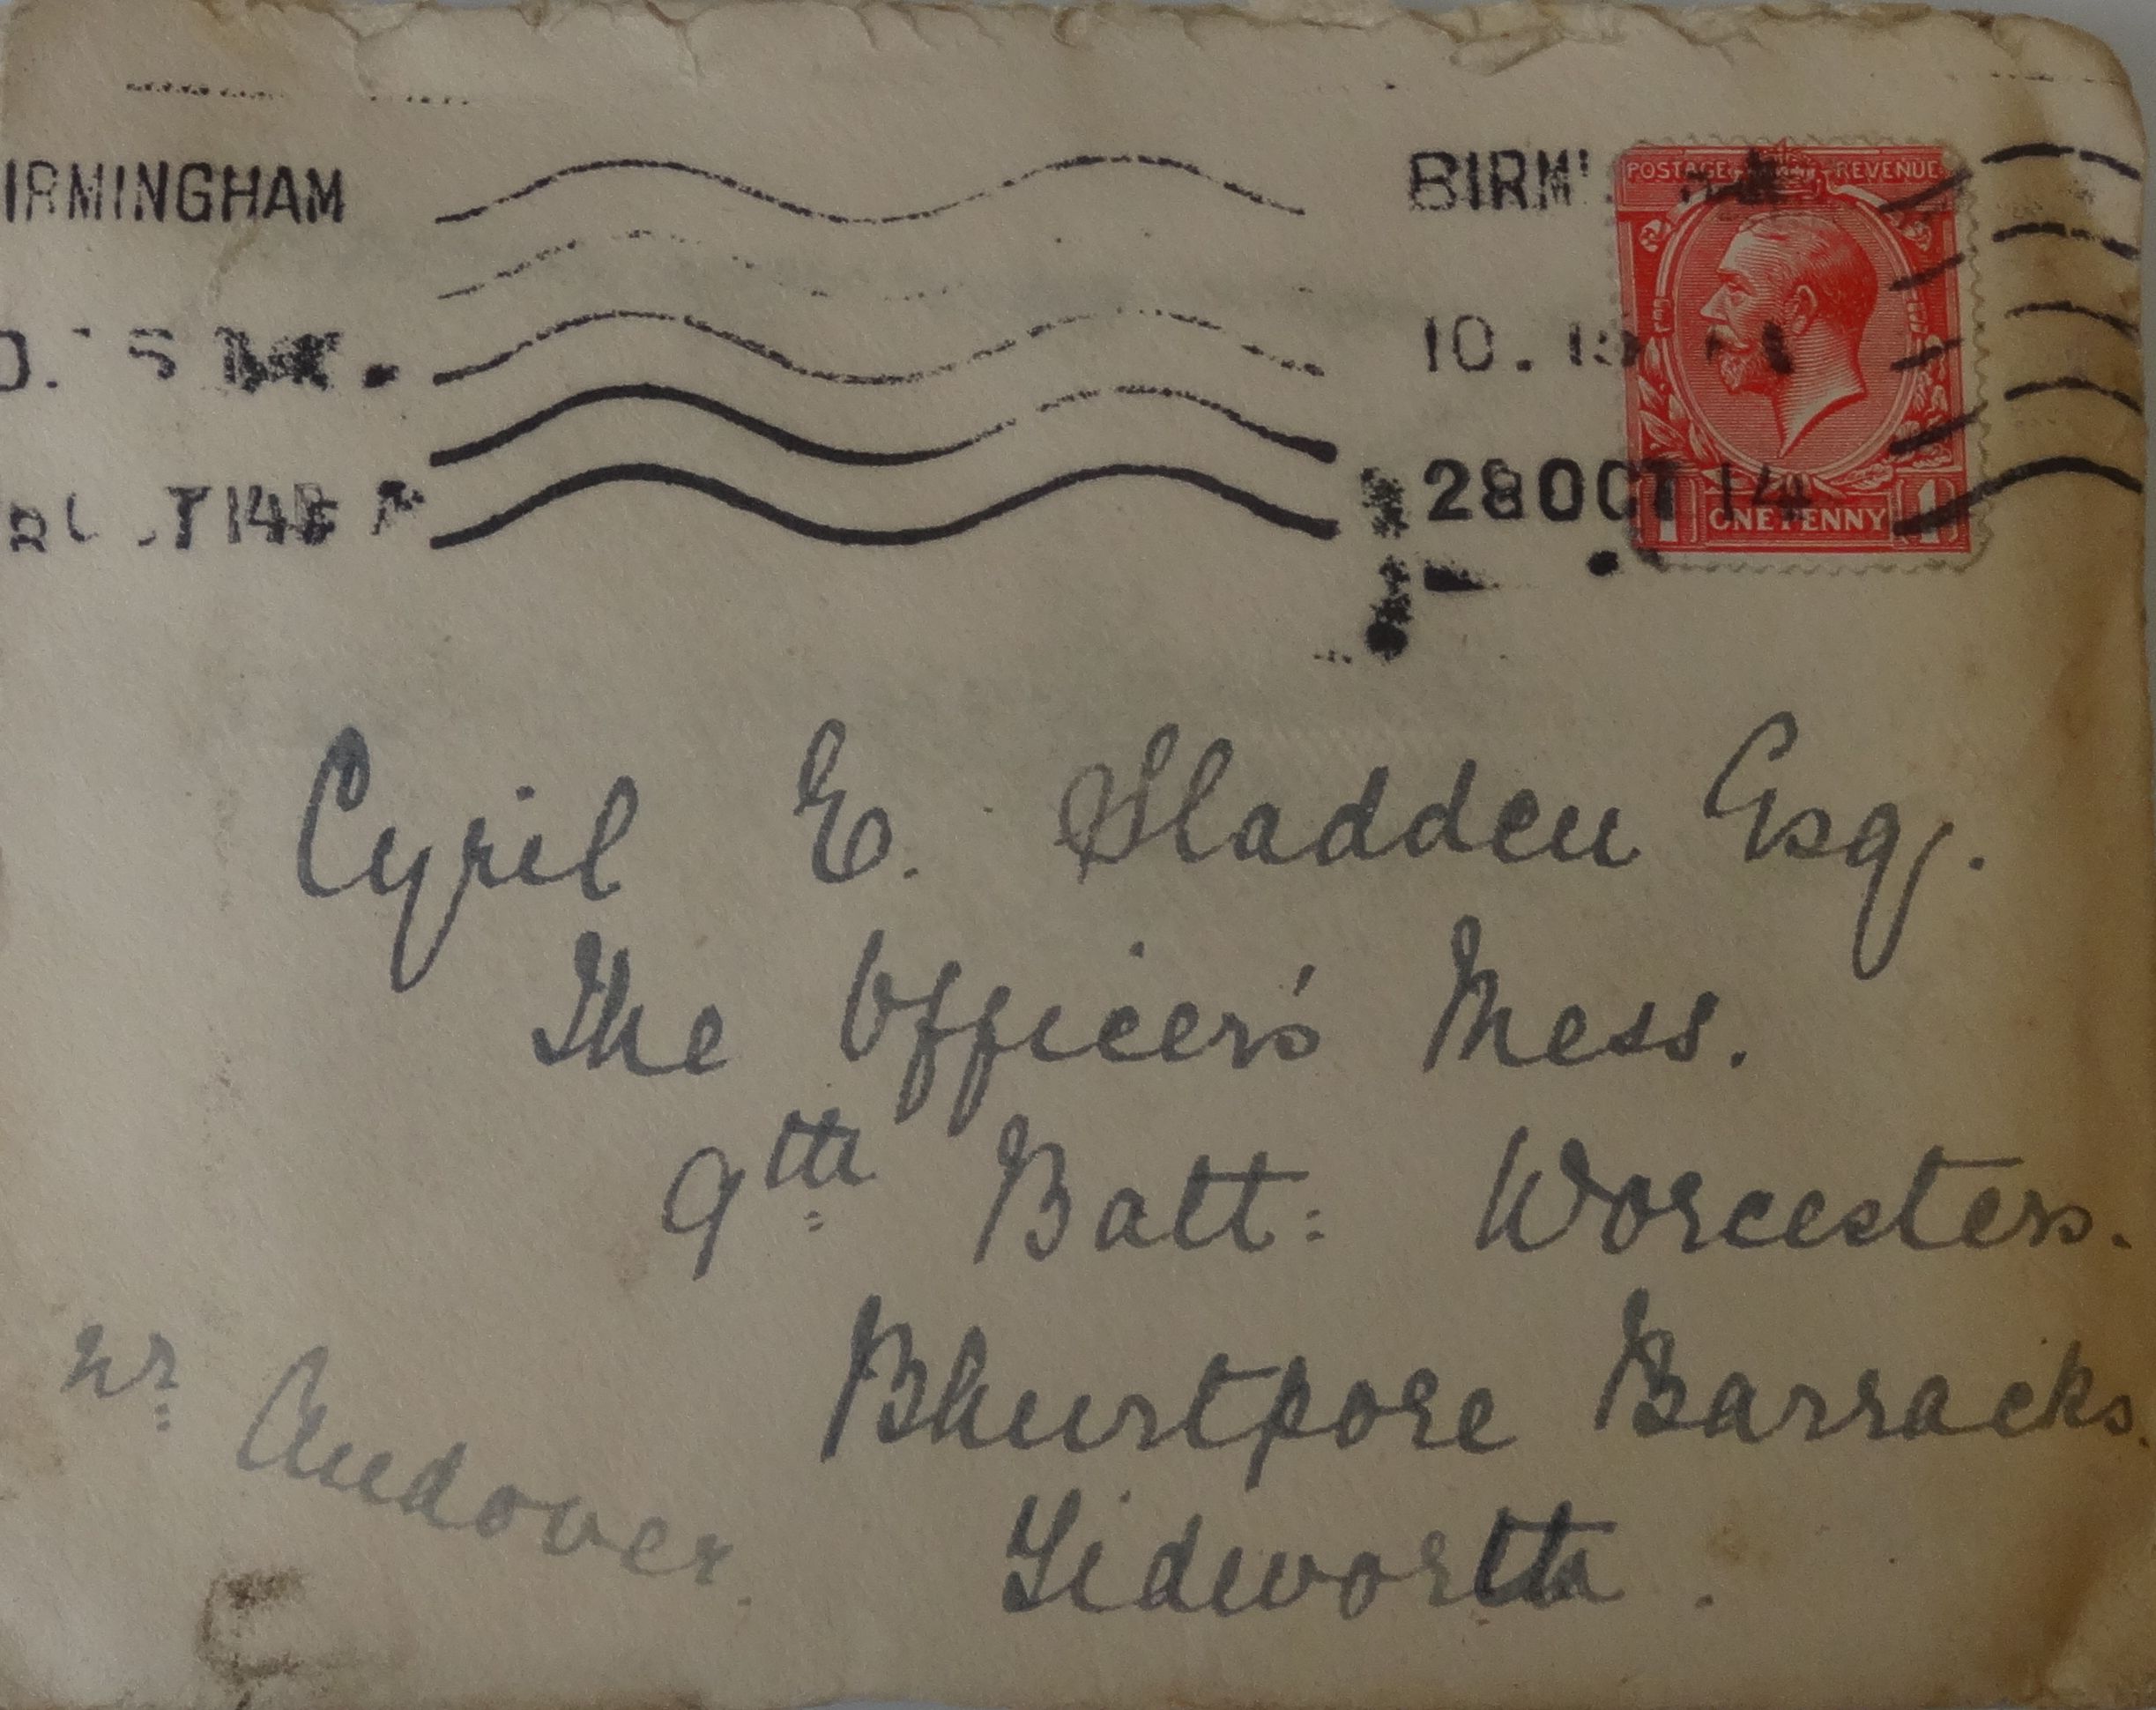 BIRMINGHAM BIRM
POSTAGE REVENUE
10.15
28 OCT 14
ONE PENNY
1 1
Cyril E. Sladden Esq.
The Officer's Mess.
9th Batt: Worcesters.
Bhurtpore Barracks.
Tidworth.
nr Andover